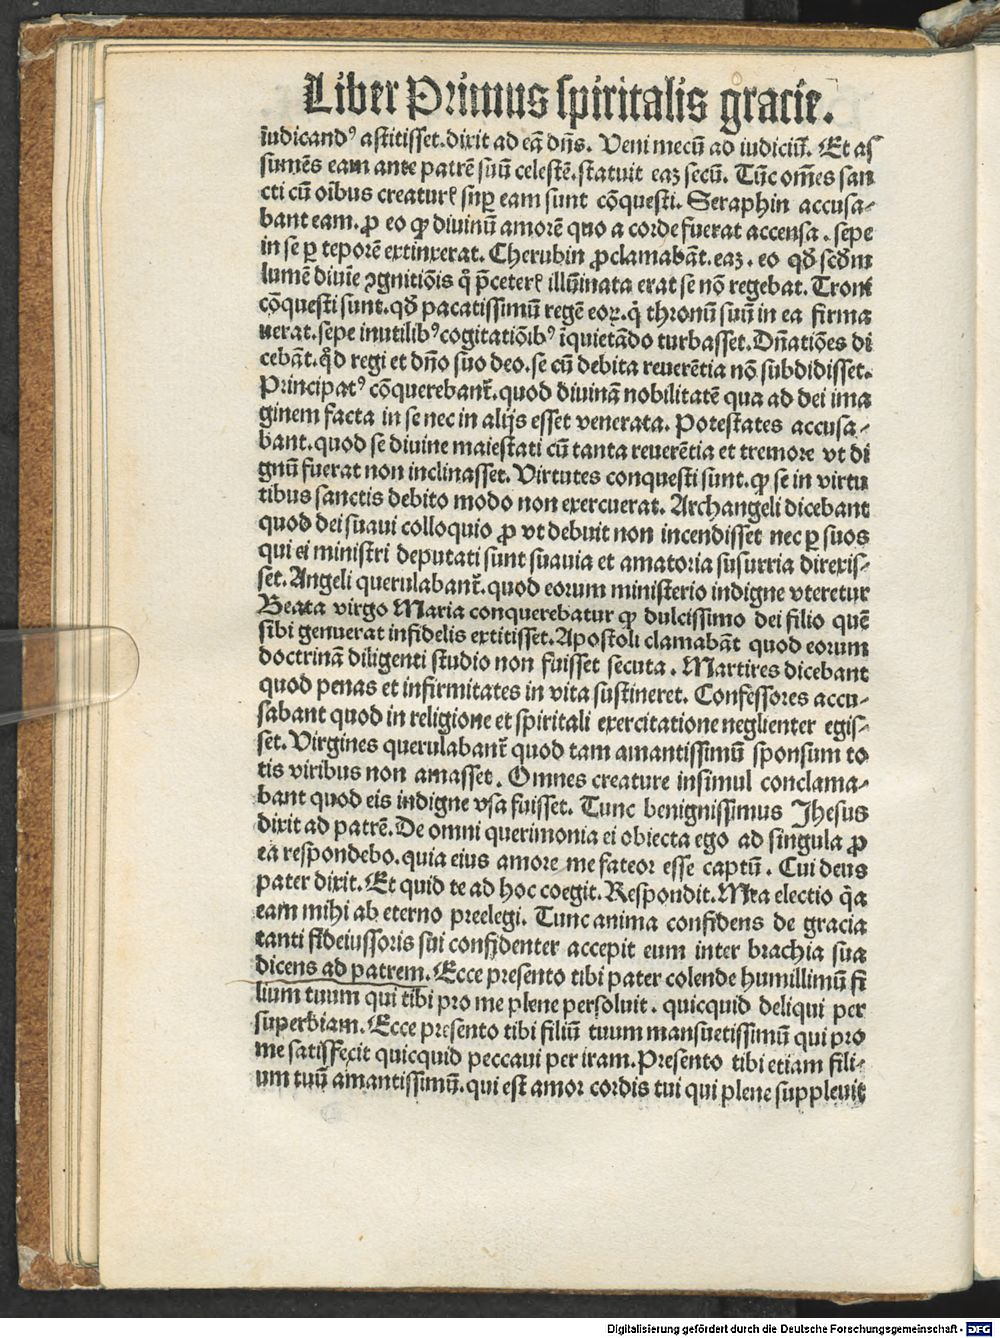 Liber Primus spiritalis gracie.
iudicandꝰ astitisset. dixit ad eā dn̄s. Veni mecū ad iudiciū. Et as
sumēs eam ante patrē suū celestē. statuit eaꝫ secū. Tūc om̄es san
cti cū oībus creaturꝭ sup̱ eam sunt cōquesti. Seraphin accusa⸗
bant eam. ꝓ eo ꝙ diuinū amorē quo a corde fuerat accensa. sepe
in se ꝑ teporē extinxerat. Cherubin ꝓclamabāt. eaꝫ. eo qd̄ scd̄m
lumē diuīe ꝯgnitiōis q̊ p̄ceterꝭ illūinata erat se nō regebat. Troni
cōquesti sunt. qd̄ pacatissimū regē eoꝝ. q̇ thronū suū in ea firma
uerat. sepe inutilibꝰ cogitatiōibꝰ īquietādo turbasset. Dn̄atiōes di
cebāt. q̊d regi et dn̄o suo deo. se cū debita reuerētia nō subdidisset.
Principatꝰ cōquerebant̄. quod diuinā nobilitatē qua ad dei ima
ginem facta in se nec in alijs esset venerata. Potestates accusa⸗
bant. quod se diuine maiestati cū tanta reuerētia et tremore vt di
gnū fuerat non inclinasset. Virtutes conquesti sunt. ꝙ se in virtu
tibus sanctis debito modo non exercuerat. Archangeli dicebant
quod dei suaui colloquio ꝓ vt debuit non incendisset nec ꝑ suos
qui ei ministri deputati sunt suauia et amatoria susurria direxis⸗
set. Angeli querulabant̄. quod eorum ministerio indigne vteretur
Beata virgo Maria conquerebatur ꝙ dulcissimo dei filio quē
sibi genuerat infidelis extitisset. Apostoli clamabāt quod eorum
doctrinā diligenti studio non fuisset secuta. Martires dicebant
quod penas et infirmitates in vita sustineret. Confessores accu⸗
sabant quod in religione et spiritali exercitatione neglienter egis⸗
set. Virgines querulabant̄ quod tam amantissimū sponsum to
tis viribus non amasset. Omnes creature insimul conclama⸗
bant quod eis indigne vsa fuisset. Tunc benignissimus Jhesus
dixit ad patrē. De omni querimonia ei obiecta ego ad singula ꝓ
ea respondebo. quia eius amore me fateor esse captū. Cui deus
pater dixit. Et quid te ad hoc coegit. Respondit. Mea electio q̄a
eam mihi ab eterno preelegi. Tunc anima confidens de gracia
tanti fideiussoris sui confidenter accepit eum inter brachia sua
dicens ad patrem. Ecce presento tibi pater colende humillimū fi
lium tuum qui tibi pro me plene persoluit. quicquid deliqui per
superbiam. Ecce presento tibi filiū tuum mansuetissimū qui pro
me satisfecit quicquid peccaui per iram. Presento tibi etiam fili⸗
um tuū amantissimū. qui est amor cordis tui qui plene suppleuit
Digitalisierung gefördert durch die Deutsche Forschungsgemeinschaft - DFG